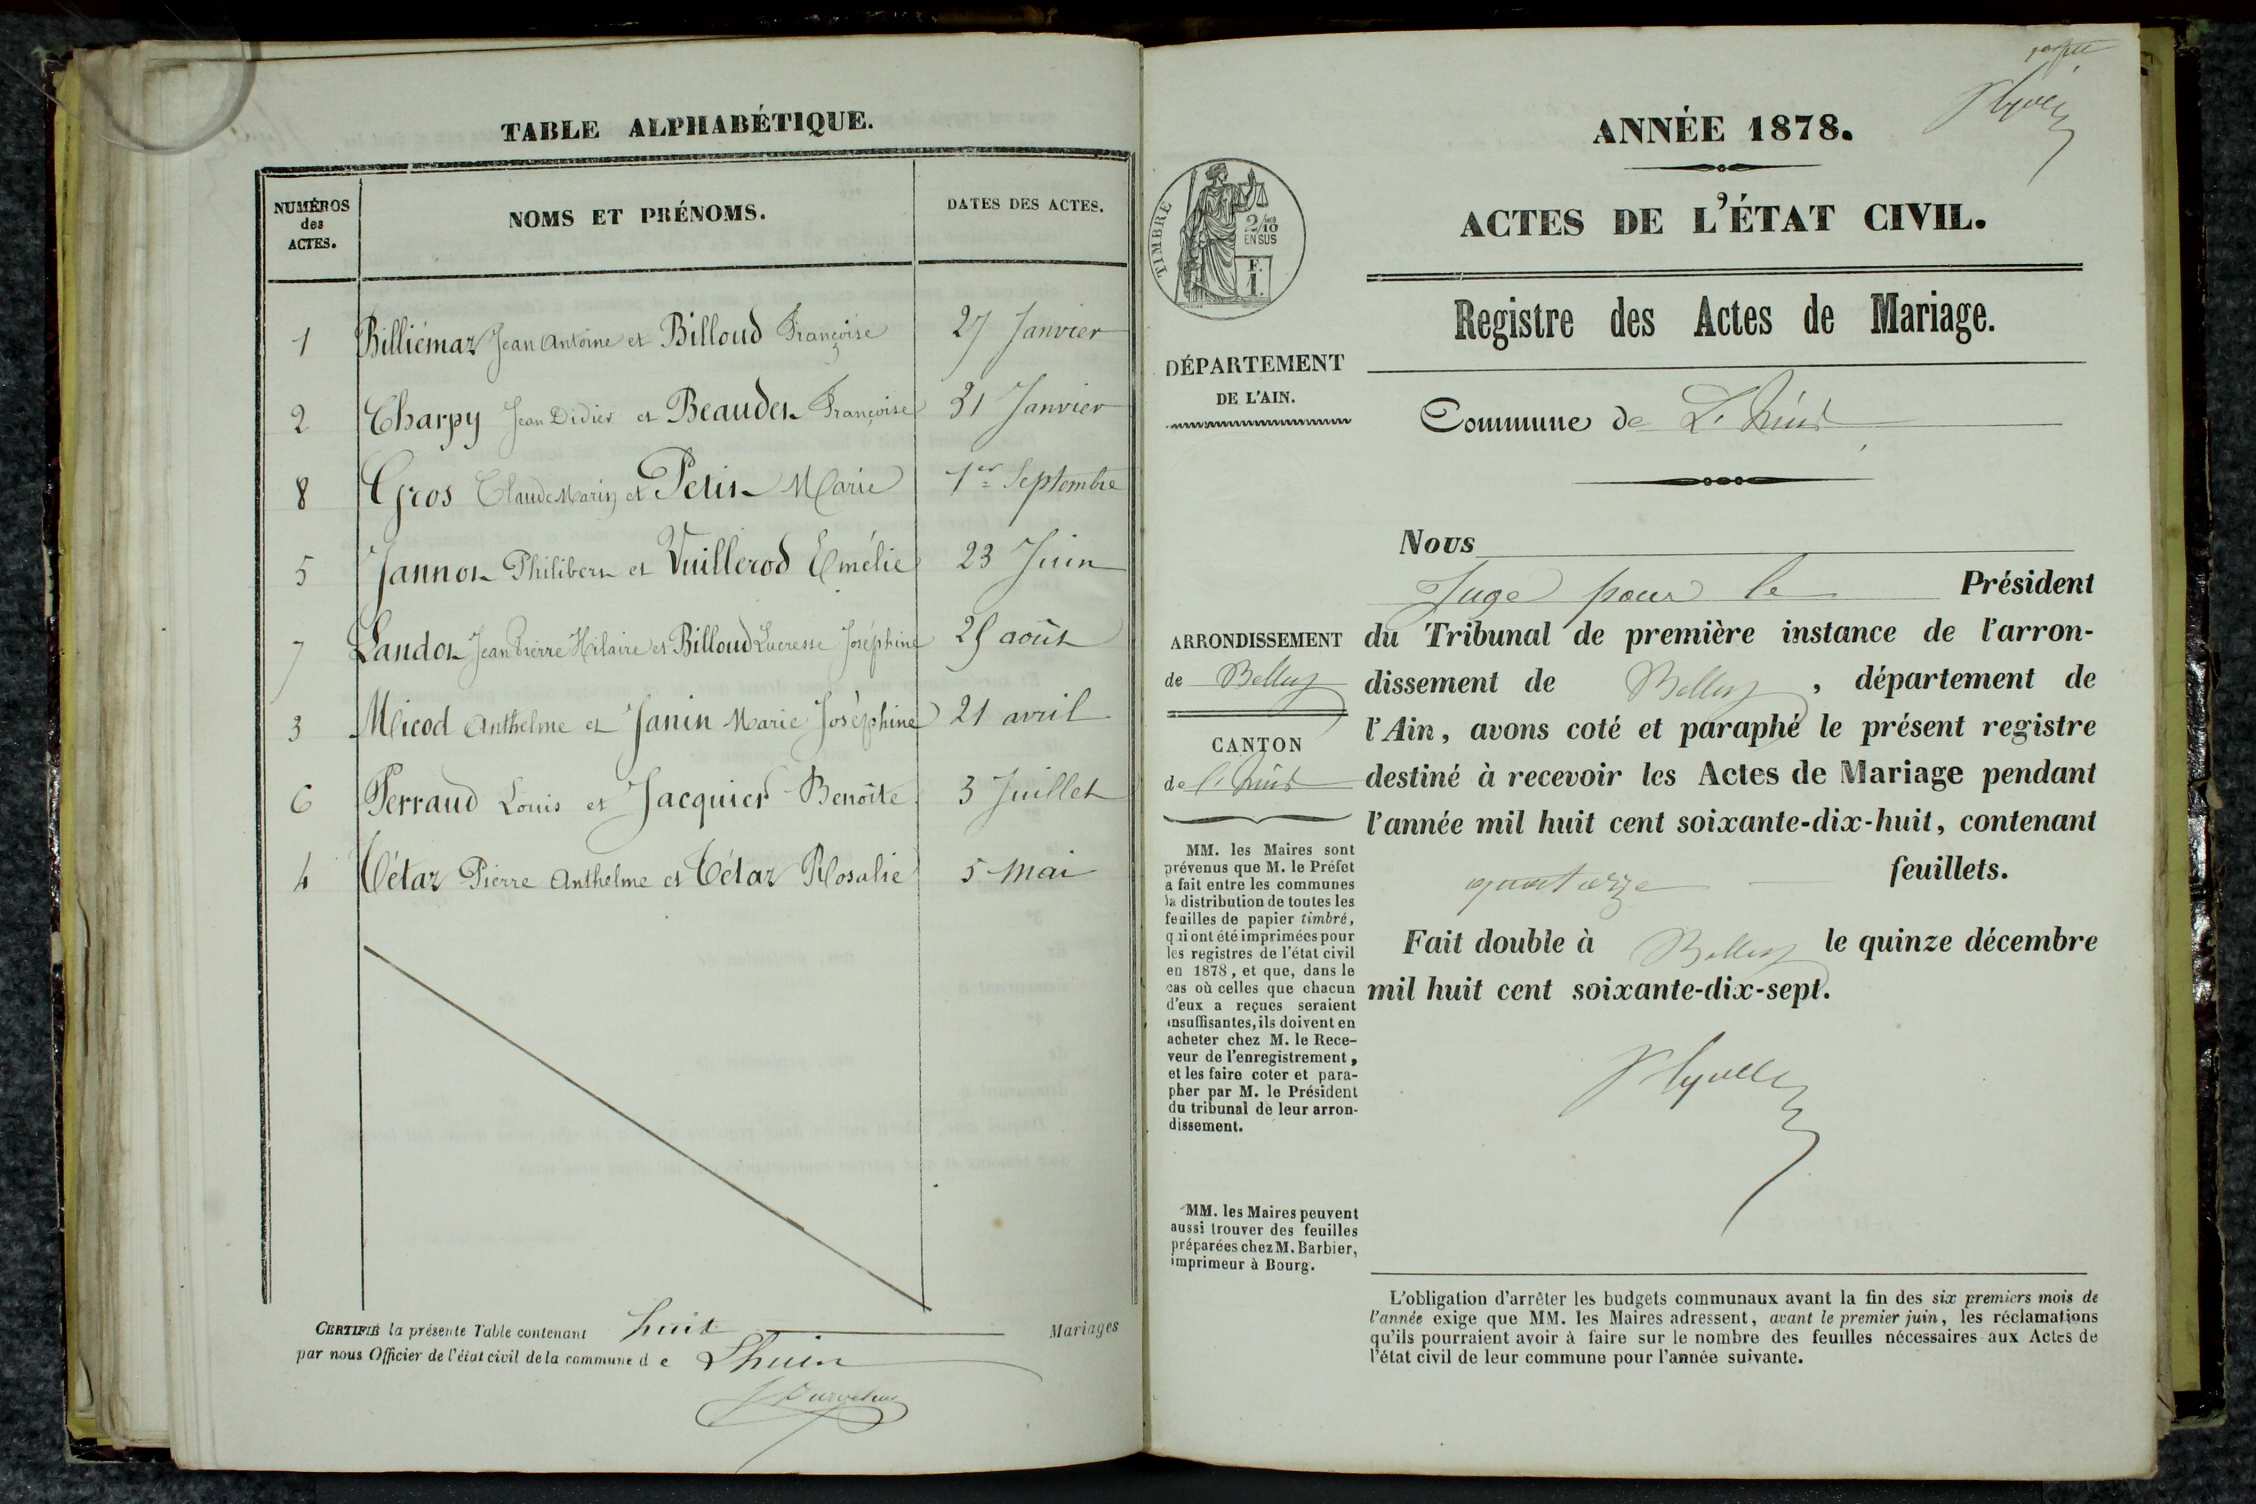 TABLE ALPHABÉTIQUE.
NUMÉROS des ACTES.
NOMS ET PRÉNOMS.
DATES DES ACTES.
1 Billiémaz Jean Antoine et Billoud Françoise 27 Janvier
2 Charpy Jean Didier et Beaudet Françoise 31 Janvier
8 Gros Claude Marin et Petit Marie 1er Septembre
5 Jannot Philibert et Vuillerod Emélie 23 Juin
7 Landot Jean Pierre Hilaire et Billoud Lucresse Joséphine 25 août
3 Micod Anthelme et Janin Marie Joséphine 21 avril
6 Perraud Louis et Jacquier Benoîte 3 Juillet
4 Tétaz Pierre Anthelme et Tétaz Rosalie 5 Mai
CERTIFIÉ la présente Table contenant huit Mariages
par nous Officier de l'état civil de la commune de Lhuis
TIMBRE
2/10
EN SUS
F.
1.
DÉPARTEMENT
DE L'AIN.
ARRONDISSEMENT
de Belley
CANTON
de Lhuis
MM. les Maires sont
prévenus que M. le Préfet
a fait entre les communes
la distribution de toutes les
feuilles de papier timbré,
qui ont été imprimées pour
les registres de l'état civil
en 1878, et que, dans le
cas où celles que chacun
d'eux a reçues seraient
insuffisantes, ils doivent en
acheter chez M. le Rece-
veur de l'enregistrement,
et les faire coter et para-
pher par M. le Président
du tribunal de leur arron-
dissement.
MM. les Maires peuvent
aussi trouver des feuilles
préparées chez M. Barbier,
imprimeur à Bourg.
ANNÉE 1878.
ACTES DE L'ÉTAT CIVIL.
Registre des Actes de Mariage.
Commune de Lhuis
Nous
Juge pour le Président
du Tribunal de première instance de l'arron-
dissement de Belley, département de
l'Ain, avons coté et paraphé le présent registre
destiné à recevoir les Actes de Mariage pendant
l'année mil huit cent soixante-dix-huit, contenant
quatorze feuillets.
Fait double à Belley le quinze décembre
mil huit cent soixante-dix-sept.
L'obligation d'arrêter les budgets communaux avant la fin des six premiers mois de
l'année exige que MM. les Maires adressent, avant le premier juin, les réclamations
qu'ils pourraient avoir à faire sur le nombre des feuilles nécessaires aux Actes de
l'état civil de leur commune pour l'année suivante.